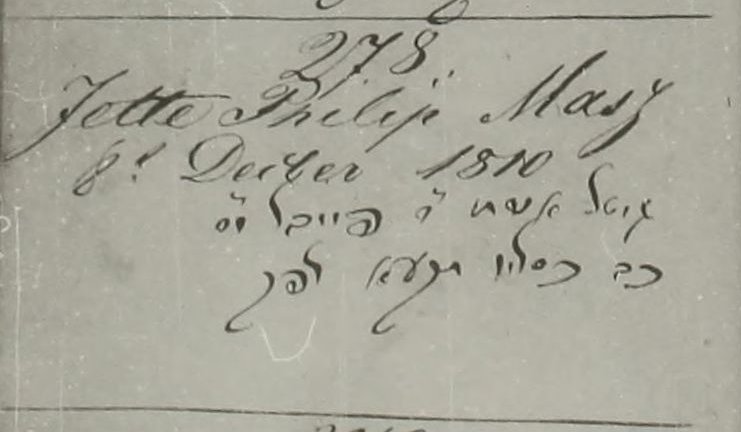 278.
Jette Philip Masz
8t Decber 1810
גיטל אשת ר' פייבל ז"ס
כב כסליו תקעא לפק